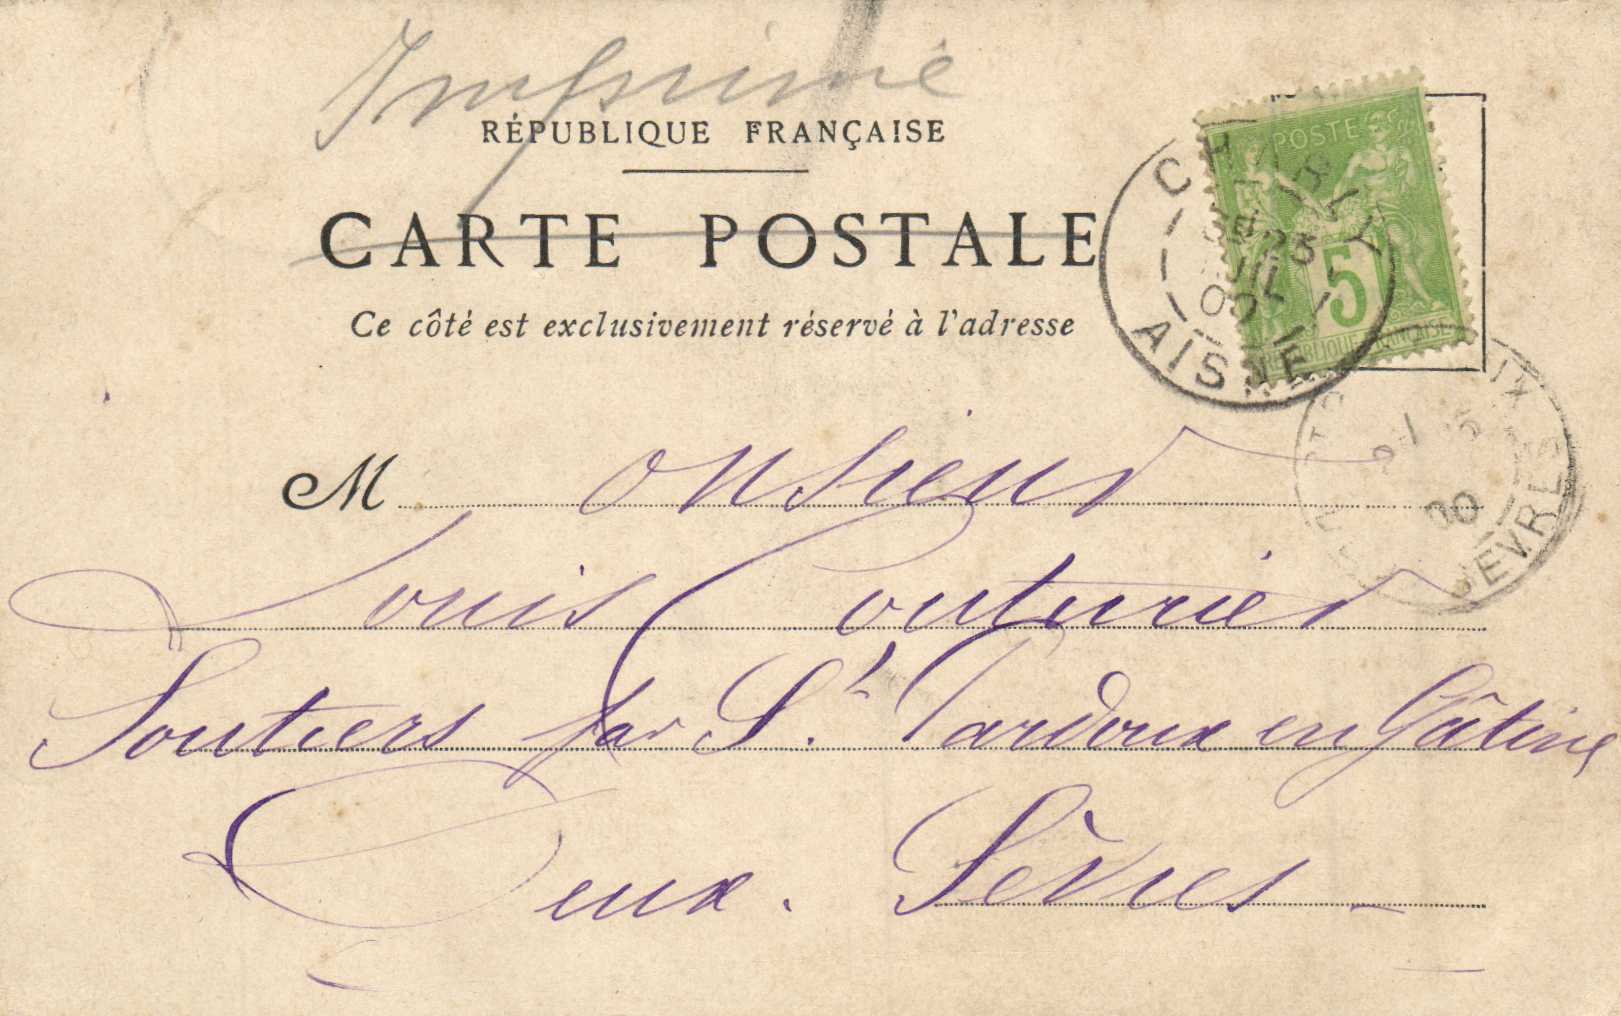 Imprimé
RÉPUBLIQUE FRANÇAISE
CARTE POSTALE
Ce côté est exclusivement réservé à l'adresse
POSTE
5
RÉPUBLIQUE FRANÇAISE
CHARLY
AISNE
Monsieur
Louis Couturier
Soutiers par St. Pardoux en Gâtine
Deux. Sèvres
00
SÈVRES